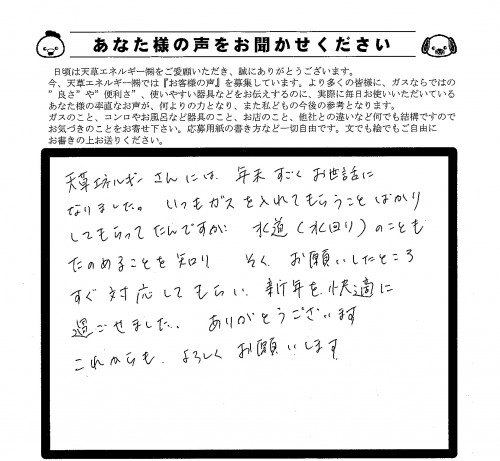 あなた様の声をお聞かせください
日頃は天草エネルギー㈱をご愛願いただき、誠にありがとうございます。
今、天草エネルギー㈱では『お客様の声』を募集しています。より多くの皆様に、ガスならではの
”良さ”や”便利さ”、使いやすい器具などをお伝えするのに、実際に毎日お使いいただいている
あなた様の率直なお声が、何よりの力となり、また私どもの今後の参考となります。
ガスのこと、コンロやお風呂など器具のこと、お店のこと、他社との違いなど何でも結構ですので
お気づきのことをお寄せ下さい。応募用紙の書き方など一切自由です。文でも絵でもご自由に
お書きの上お送りください。
天草エネルギー さんには、年末 すごく お世話に
なりました。 いつもガスを入れてもらうことばかり
してもらってたんですが 水道(水回り)のことも
たのめることを知り そく、お願いしたところ
すぐ 対応してもらい、新年を快適に
過ごせました。 ありがとうございます
これからも、よろしく お願いします